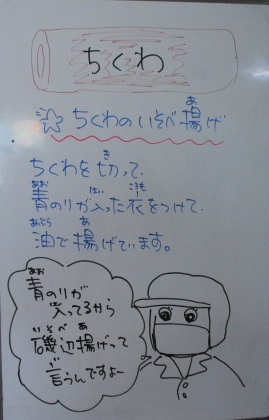 ちくわ
☆ちくわのいそべ揚げ
ちくわを切って、
青のりが入った衣をつけて、
油で揚げています。
青のりが
入ってるから
磯辺揚げって
言うんですよー